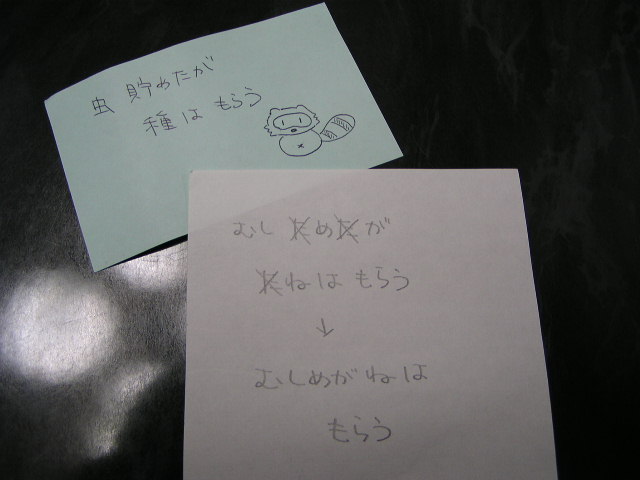 虫 貯めたが
種は もらう
むし ためたが
たねは もらう
↓
むしめがねは
もらう